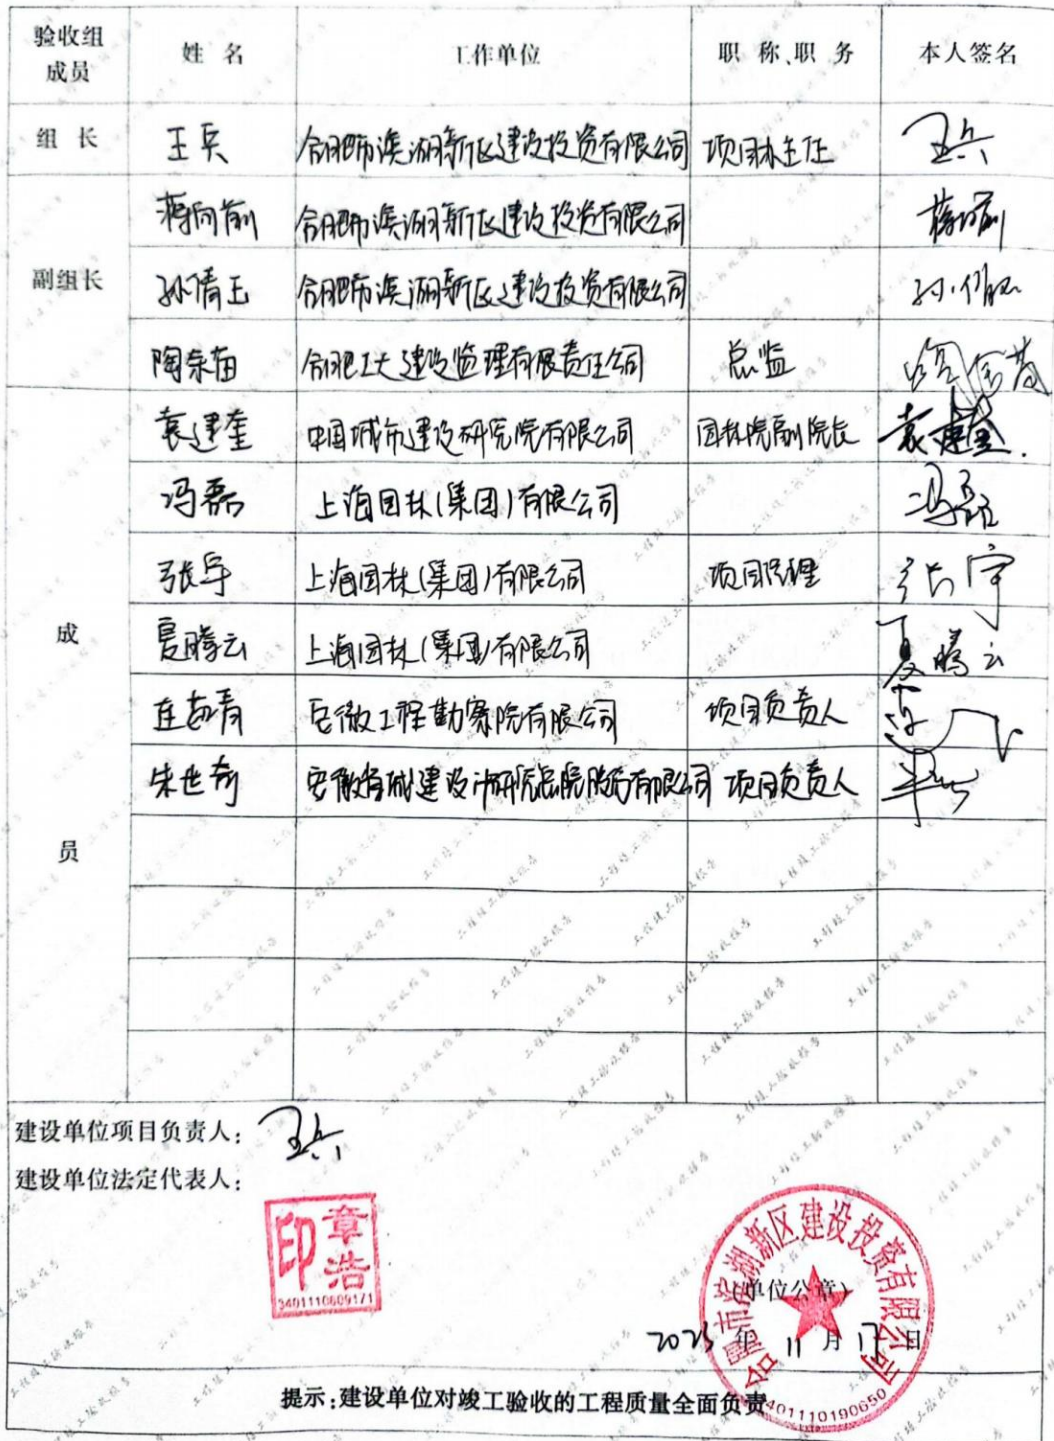 验收组成员 姓名 工作单位 职称、职务 本人签名
组长 王兵 合肥市滨湖新区建设投资有限公司 项目办主任 王兵
蒋向前 合肥市滨湖新区建设投资有限公司 蒋向前
副组长 孙倩玉 合肥市滨湖新区建设投资有限公司
陶东苗 合肥工大建设监理有限责任公司 总监
袁建奎 中国城市建设研究院有限公司 园林院副院长 袁建奎
冯磊 上海园林(集团)有限公司 冯磊
张宇 上海园林(集团)有限公司 项目经理 张宇
成 夏腾云 上海园林(集团)有限公司 夏腾云
安徽工程勘察院有限公司 项目负责人
朱世奇 安徽省城建设计研究总院股份有限公司 项目负责人
员
建设单位项目负责人: 王兵
建设单位法定代表人:
印章浩
3401110609171
合肥市滨湖新区建设投资有限公司
(单位公章)
2023 年 11 月 17 日
3401110190650
提示:建设单位对竣工验收的工程质量全面负责
工程竣工验收报告